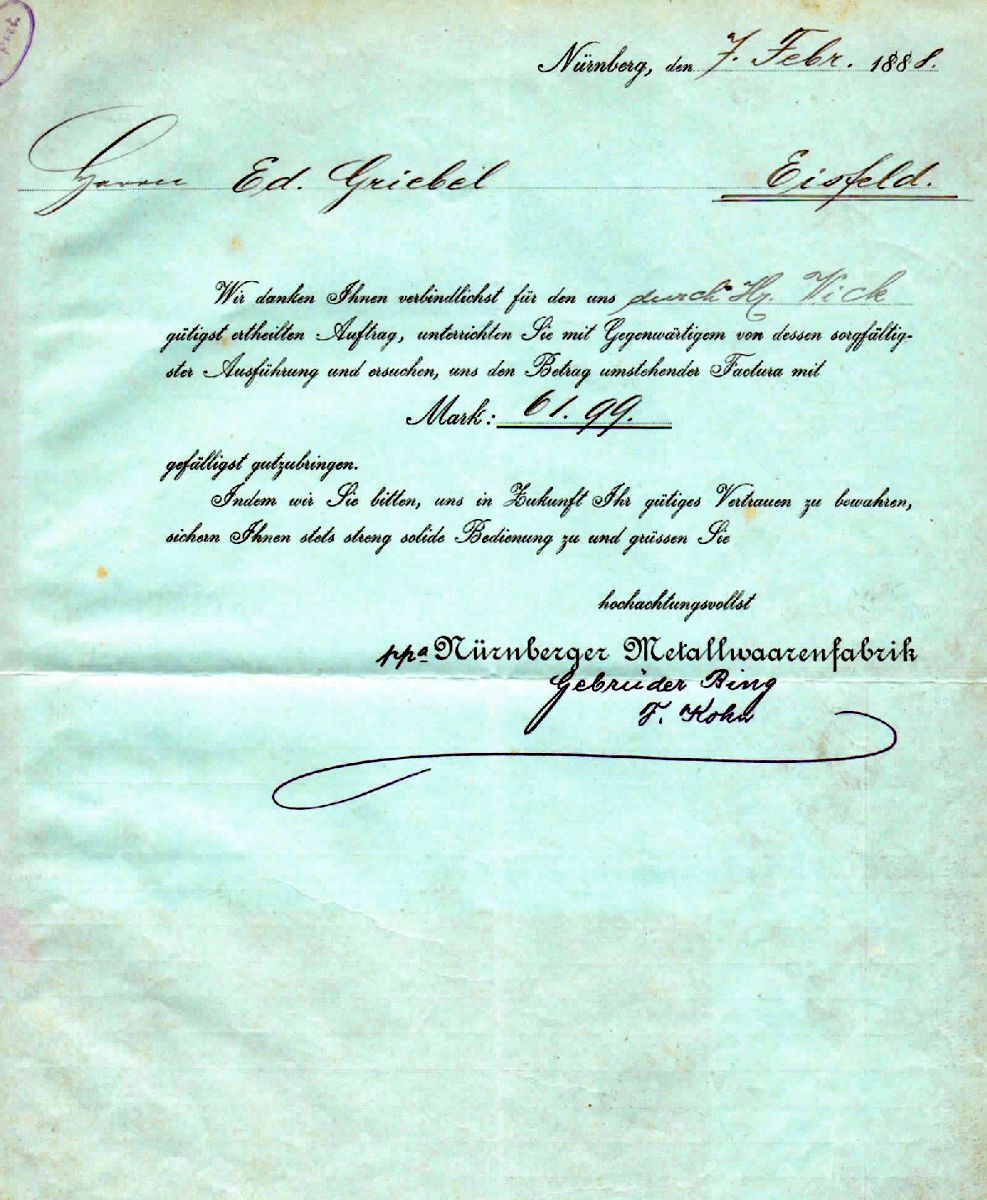 Nürnberg, den 7. Febr. 1888.
Herrn Ed. Griebel Eisfeld.
Wir danken Ihnen verbindlichst für den uns durch Hr. Vick
gütigst ertheilten Auftrag, unterrichten Sie mit Gegenwärtigem von dessen sorgfältig-
ster Ausführung und ersuchen, uns den Betrag umstehender Factura mit
Mark: 61.99.
gefälligst gutzubringen.
Indem wir Sie bitten, uns in Zukunft Ihr gütiges Vertrauen zu bewahren,
sichern Ihnen stets streng solide Bedienung zu und grüssen Sie
hochachtungsvollst
ppa Nürnberger Metallwaarenfabrik
Gebrüder Bing
F. Kohn